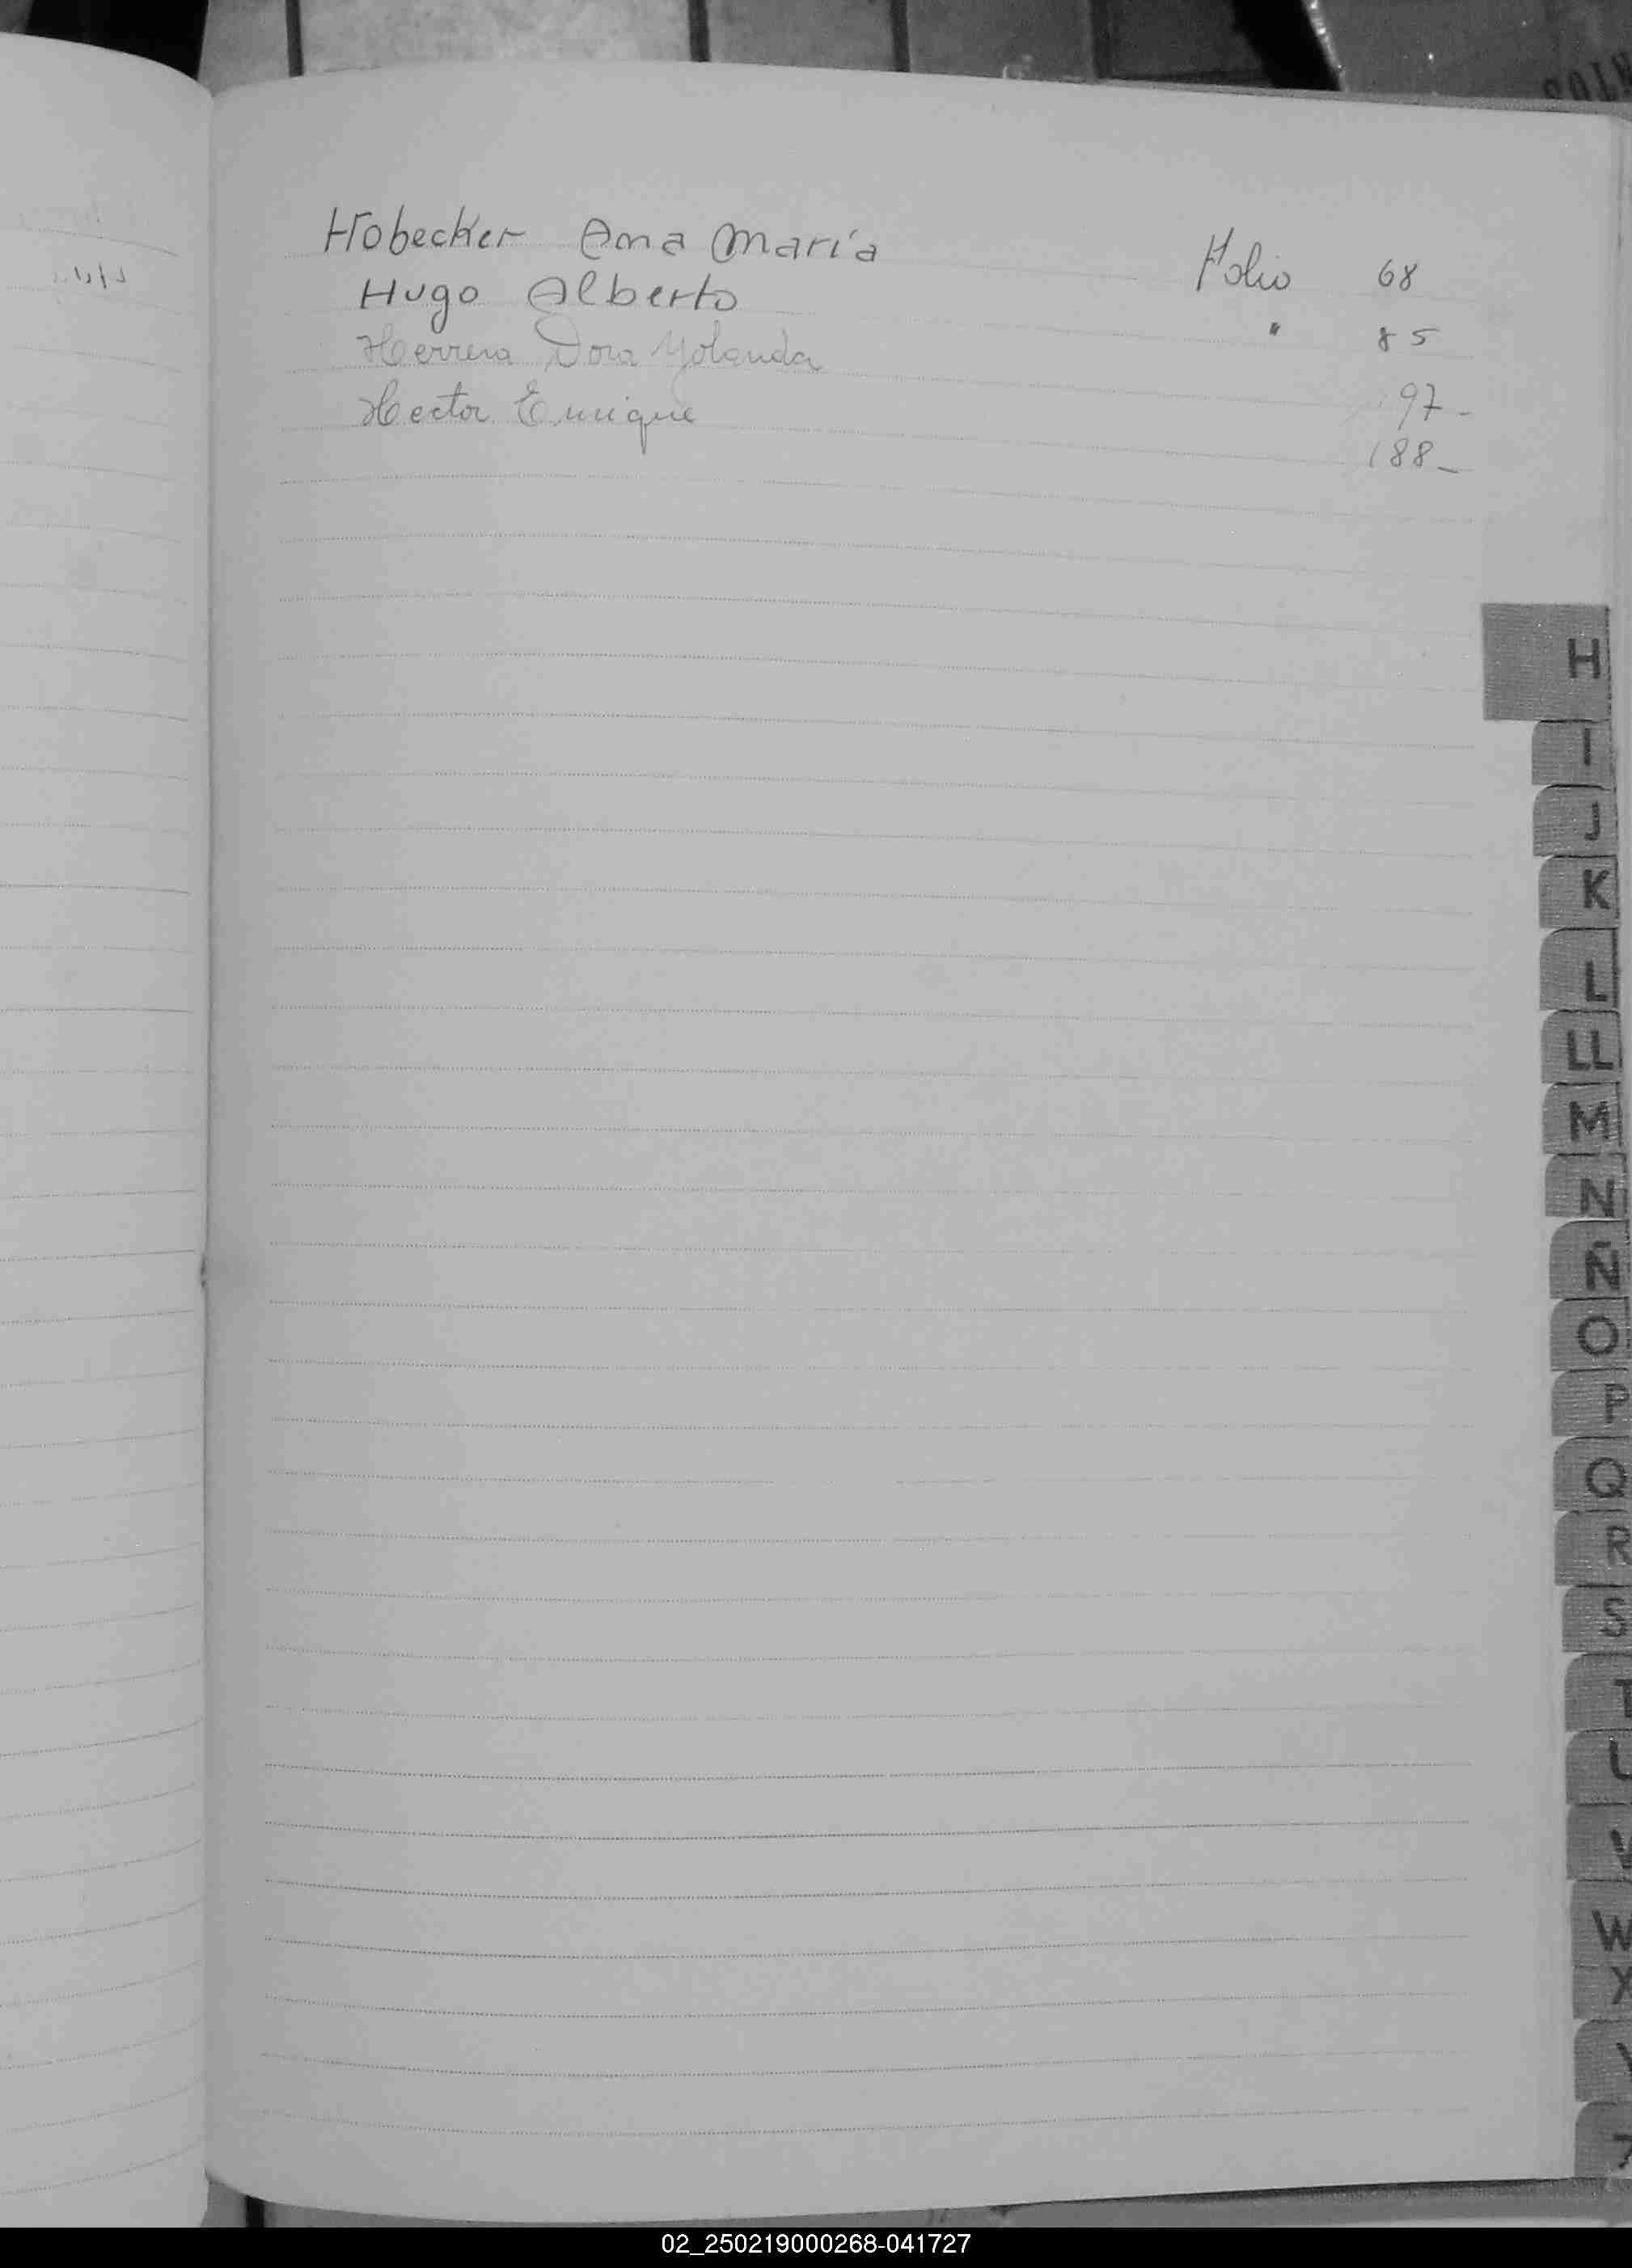 Hobecker Ana María Folio 68
Hugo Alberto " 85
Herrera Dora Yolanda 97-
Hector Enrique 188-
H
I
J
K
L
LL
M
N
Ñ
O
P
Q
R
S
T
U
V
W
X
Y
Z
02_250219000268-041727